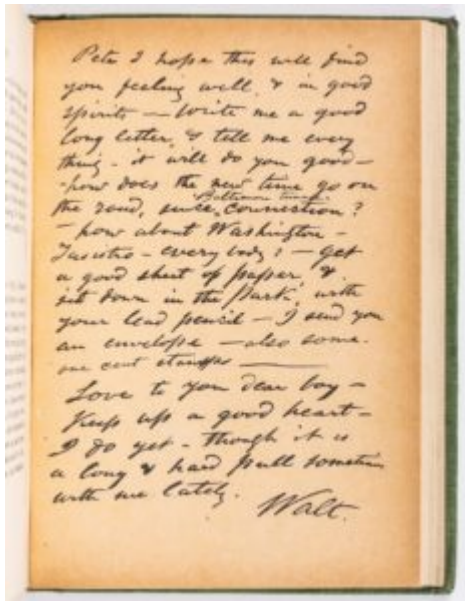 Pete I hope this will find
you feeling well, & in good
spirits — Write me a good
long letter, & tell me every
thing - it will do you good —
how does the new time go on
the road, since Baltimore tunnel connection?
— how about Washington —
Tasistro - every body? — get
a good sheet of paper, &
sit down in the Park, with
your lead pencil — I send you
an envelope — also some
one cent stamps —
Love to you dear boy —
Keep up a good heart —
I do yet - though it is
a long & hard pull sometimes
with me lately.
Walt.